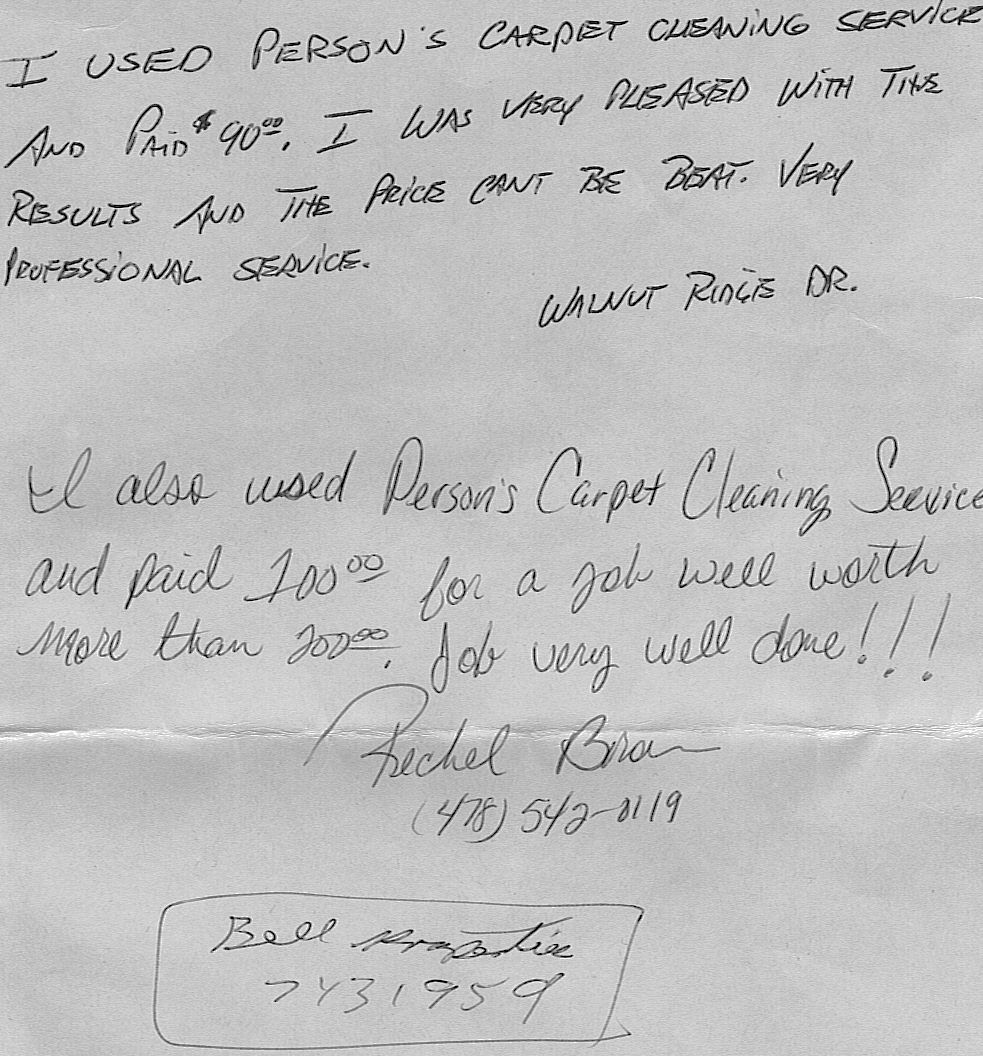 I USED PERSON'S CARPET CLEANING SERVICE
AND PAID $90.00. I WAS VERY PLEASED WITH THE
RESULTS AND THE PRICE CANT BE BEAT. VERY
PROFESSIONAL SERVICE.
WALNUT RIDGE DR.
I also used Person's Carpet Cleaning Service
and paid 100.00 for a job well worth
more than 200.00. Job very well done!!!
(478) 542-0119
Bell Properties
7431959